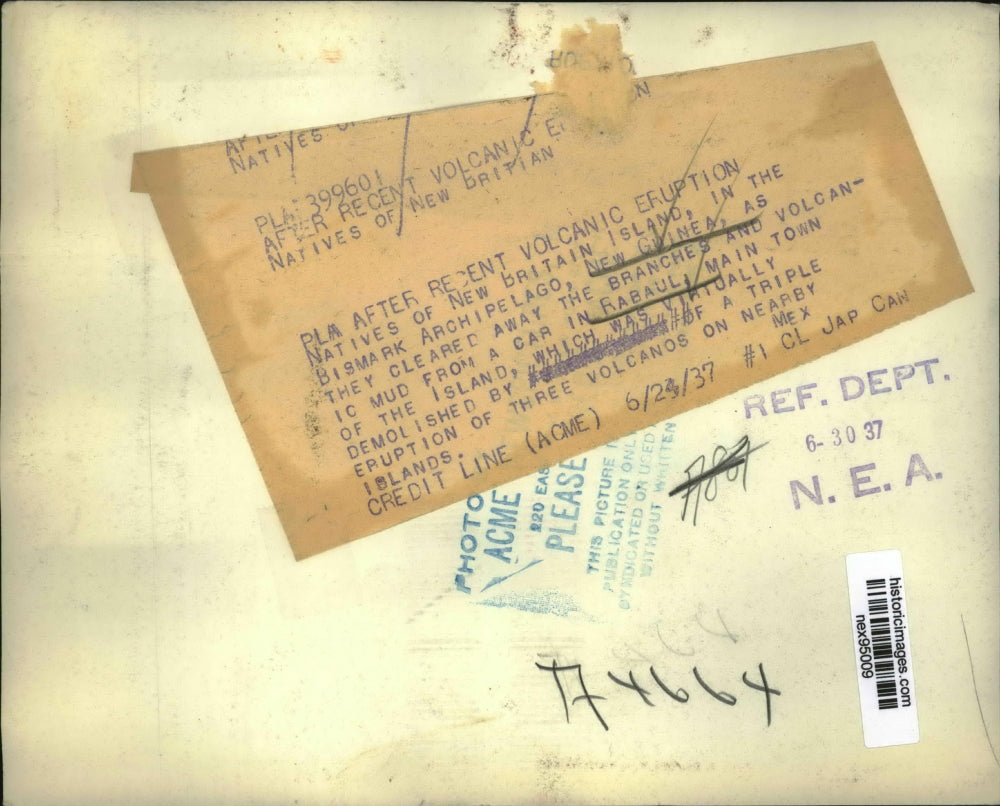 NATIVES
PLM 399601
AFTER RECENT VOLCANIC
NATIVES OF NEW BRITIAN
PLM AFTER RECENT VOLCANIC ERUPTION
NATIVES OF NEW BRITAIN ISLAND, IN THE
BISMARK ARCHIPELAGO, NEW GUINEA, AS
THEY CLEARED AWAY THE BRANCHES AND VOLCAN-
IC MUD FROM A CAR IN RABAUL, MAIN TOWN
OF THE ISLAND, WHICH WAS VIRTUALLY
DEMOLISHED BY OF A TRIPLE
ERUPTION OF THREE VOLCANOS ON NEARBY
ISLANDS. MEX
CREDIT LINE (ACME) 6/23/37 #1 CL JAP CAN
REF. DEPT.
6-30 37
N. E. A.
PHOTO
ACME
220 EAS
PLEASE
THIS PICTURE
PUBLICATION ONL
SYNDICATED OR USED
WITHOUT WRITTEN
historicimages.com
nex95009